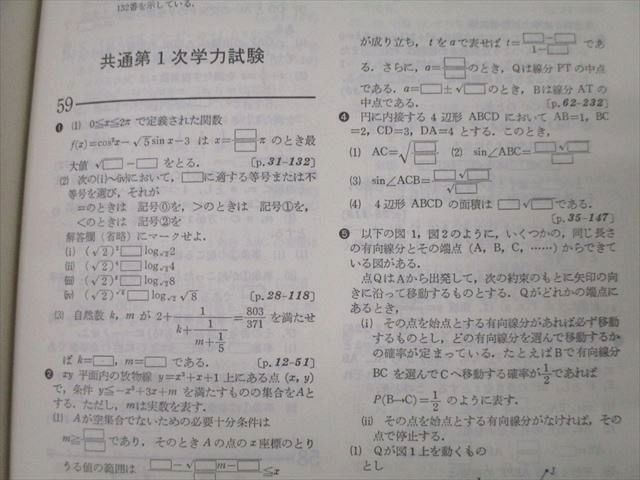 132番を示している.
共通第1次学力試験
59
❶ (1) 0≦x≦2π で定義された関数
f(x)=cos²x−√5 sin x−3 は x=□/□π のとき最
大値 √□−□をとる. [p.31-132]
(2) 次の(i)~(iv)において, □に適する等号または不
等号を選び, それが
=のときは 記号⓪を, >のときは 記号①を,
<のときは 記号②を
解答欄(省略)にマークせよ.
(i) (√2)²□log√2 2
(ii) (√2)⁴□log√2 4
(iii) (√2)⁸□log√2 8
(iv) □log√2 √8 [p.28-118]
(3) 自然数 k, m が 2+1/(k+1/(m+1/5))=803/371 を満たせ
ば k=□, m=□ である. [p.12-51]
❷ xy 平面内の放物線 y=x²+x+1 上にある点 (x, y)
で, 条件 y≦−x²+3x+m を満たすものの集合をAと
する. ただし, mは実数を表す.
(1) Aが空集合でないための必要十分条件は
m≧□/□であり, そのとき A の点の x 座標のとり
うる値の範囲は □−√□m−□/□≦x
が成り立ち, t をaで表せば t=□−□/1−□ であ
る. さらに, a=□/□のとき, Qは線分 PT の中点
である. a=□±√□のとき, Bは線分 AT の
中点である. [p.62-232]
❹ 円に内接する 4 辺形 ABCD において AB=1, BC
=2, CD=3, DA=4 とする. このとき,
(1) AC=√□/□ (2) sin∠ABC=□√□/□
(3) sin∠ACB=□√□/√□
(4) 4 辺形 ABCD の面積は □√□である.
[p.35-147]
❺ 以下の図 1, 図 2 のように, いくつかの, 同じ長さ
の有向線分とその端点 (A, B, C, ……) からできて
いる図がある.
点QはAから出発して, 次の約束のもとに矢印の向
きに沿って移動するものとする. Qがどれかの端点に
あるとき,
(i) その点を始点とする有向線分があれば必ず移動
するものとし, どの有向線分を選んで移動するか
の確率が定まっている. たとえばBで有向線分
BC を選んでCへ移動する確率が1/2であれば
P(B→C)=1/2 のように表す.
(ii) その点を始点とする有向線分がなければ, その
点で停止する.
(1) Qが図1上を動くもの
とし